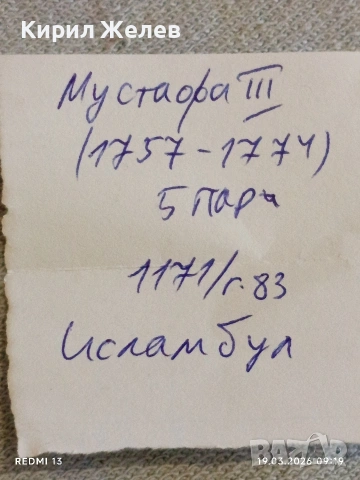 Кирил Желев
Мустафа III
(1757-1774)
5 пари
1171/г.83
Исламбул
REDMI 13
19.03.2026 09:19
BAZAR